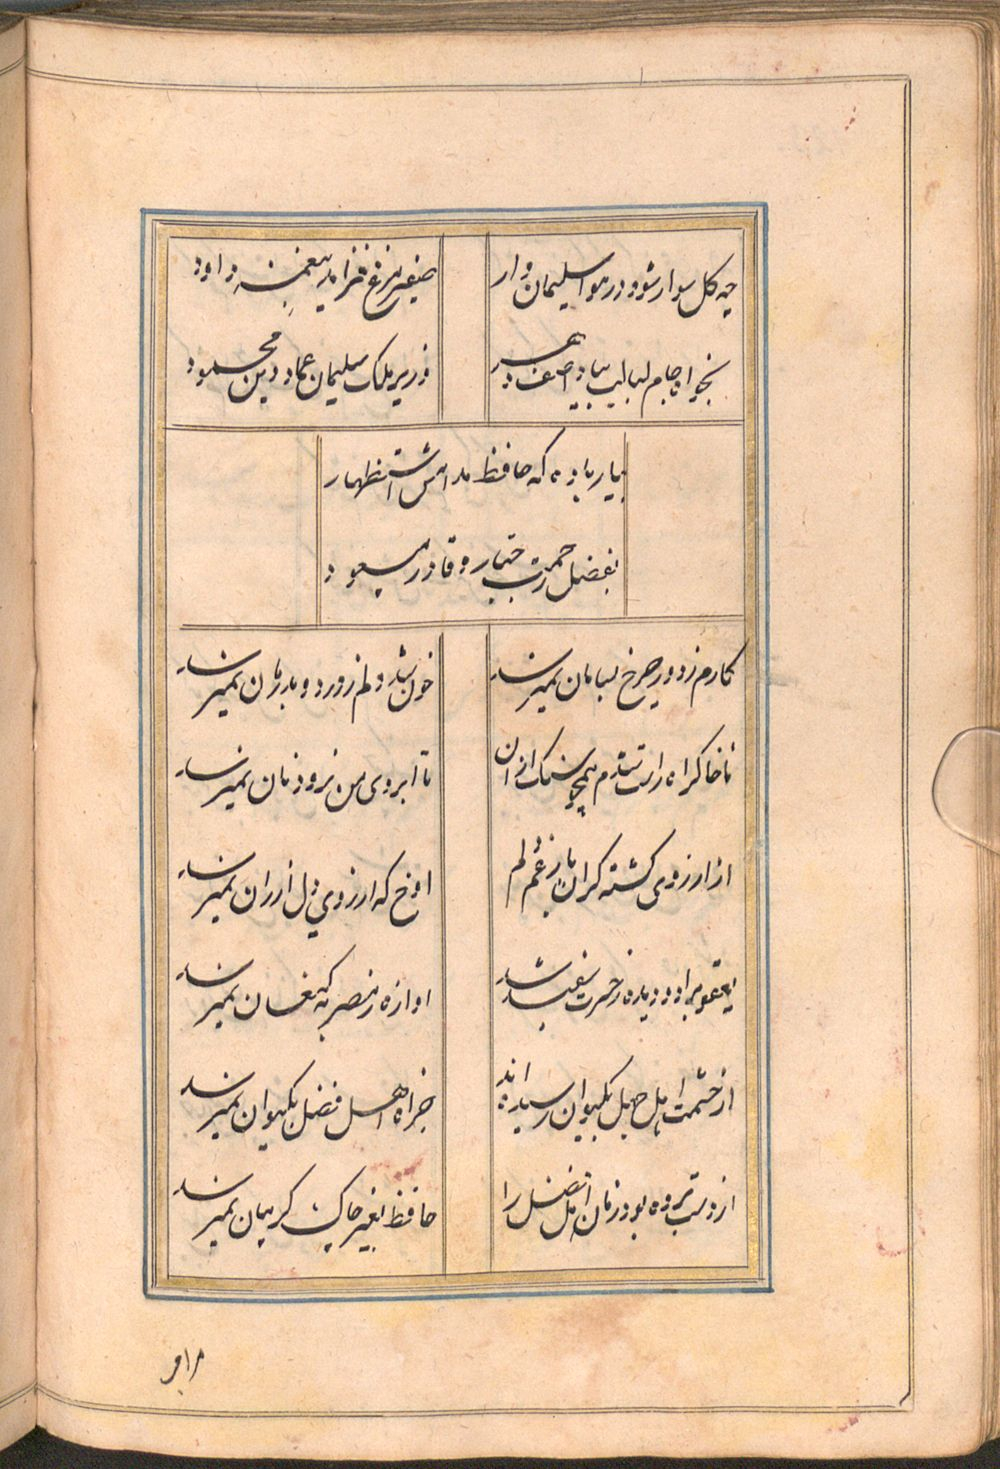 چه گل سوار شود در هوا سلیمان وار
صفیر مرغ در آید بنغمهٔ داود
بخواه جام لبالب بیاد آصف عهد
وزیر ملک سلیمان عماد دین محمود
بیار باده که حافظ مدامش استظهار
بفضل رحمت جبار و قادر مسعود
کارم ز دور چرخ بسامان نمیرسد
خون شد دلم ز درد و بدرمان نمیرسد
تا خاک راه راست شدم همچو سگ از آن
تا ابروی من نرود نان نمیرسد
از ارزوی کشته گران بار غم دلم
اوخ که ارزوی دل ارزان نمیرسد
یعقوب را دو دیده ز حسرت سفید شد
اوازه ز مصر به کنعان نمیرسد
از حشمت اهل جهل بکیوان رسیده اند
جز اه اهل فضل بکیوان نمیرسد
از دستبرده بود زمان اهل فضل را
حافظ بغیر چاک گریبان نمیرسد
مرا مر